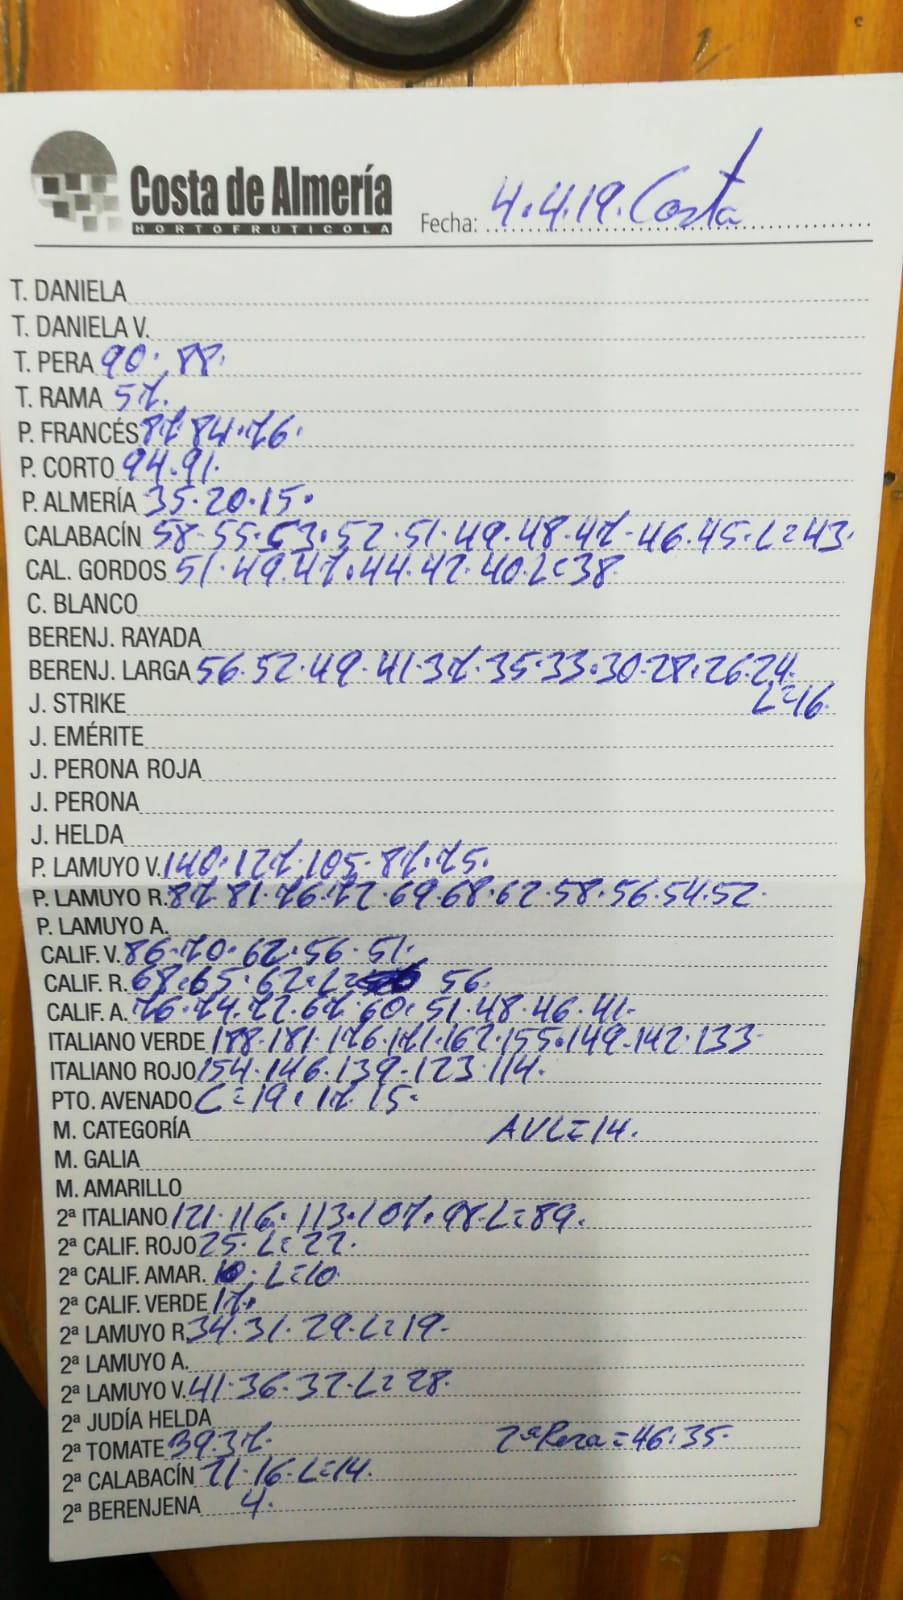 Costa de Almería
HORTOFRUTICOLA
Fecha: 4.4.19. Costa
T. DANIELA
T. DANIELA V.
T. PERA 90. 88.
T. RAMA 57.
P. FRANCÉS 87. 84. 76.
P. CORTO 94. 91.
P. ALMERÍA 35. 20. 15.
CALABACÍN 58. 55. 53. 52. 51. 49. 48. 47. 46. 45. L=43.
CAL. GORDOS 51. 49. 47. 44. 42. 40. L=38.
C. BLANCO
BERENJ. RAYADA
BERENJ. LARGA 56. 52. 49. 41. 37. 35. 33. 30. 28. 26. 24.
L=16.
J. STRIKE
J. EMÉRITE
J. PERONA ROJA
J. PERONA
J. HELDA
P. LAMUYO V. 140. 127. 105. 87. 75.
P. LAMUYO R. 87. 81. 76. 72. 69. 68. 62. 58. 56. 54. 52.
P. LAMUYO A.
CALIF. V. 86. 70. 62. 56. 51.
CALIF. R. 68. 65. 62. L= 56.
CALIF. A. 76. 74. 72. 67. 60. 51. 48. 46. 41.
ITALIANO VERDE 188. 181. 176. 171. 162. 155. 149. 142. 133.
ITALIANO ROJO 154. 146. 139. 123. 114.
PTO. AVENADO C=19. 17. 15.
M. CATEGORÍA AVL=14.
M. GALIA
M. AMARILLO
2ª ITALIANO 121. 116. 113. 107. 98. L=89.
2ª CALIF. ROJO 25. L=22.
2ª CALIF. AMAR. L=10.
2ª CALIF. VERDE 17.
2ª LAMUYO R. 34. 31. 29. L=19.
2ª LAMUYO A.
2ª LAMUYO V. 41. 36. 32. L=28.
2ª JUDÍA HELDA
2ª TOMATE 39. 37. 2ª Pera=46. 35.
2ª CALABACÍN 21. 16. L=14.
2ª BERENJENA 4.